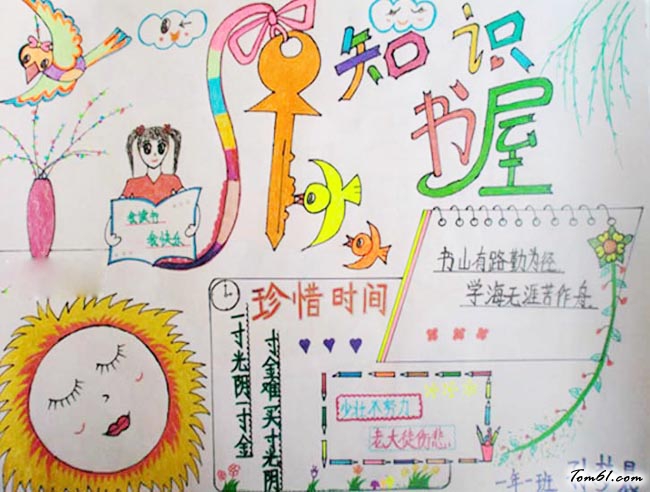 知识
书屋
我读书
我快乐
书山有路勤为径
学海无涯苦作舟
珍惜时间
一寸光阴一寸金
寸金难买寸光阴
少壮不努力
老大徒伤悲
一年一班
Tom61.com